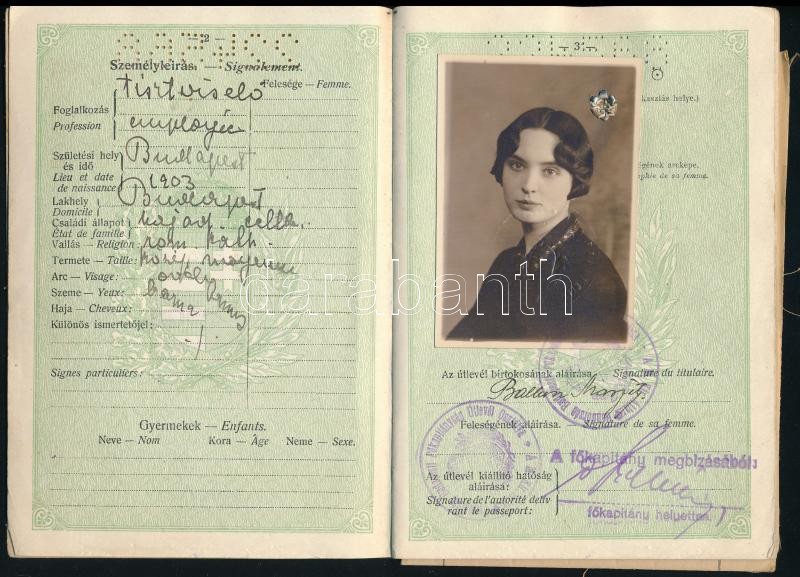 — 2 —
Személyleírás. — Signalement.
Felesége — Femme.
tisztviselő
Foglalkozás
Profession
employée
Születési hely és idő
Lieu et date de naissance
Budapest
1903
Lakhely
Domicile
Budapest
Családi állapot
État de famille
hajad. célib.
Vallás — Religion: róm. kath.
Termete — Taille: közép moyenne
Arc — Visage: ovális
Szeme — Yeux: barna bruns
Haja — Cheveux:
Különös ismertetőjel:
Signes particuliers:
Gyermekek — Enfants.
Neve — Nom Kora — Âge Neme — Sexe.
— 3 —
kasztás helye.)
égének arcképe.
phie de sa femme.
darabanth
Az útlevél birtokosának aláírása. — Signature du titulaire.
Margit
Feleségének aláírása. — Signature de sa femme.
A főkapitány megbízásából:
Az útlevél kiállító hatóság aláírása:
Signature de l'autorité délivrant le passeport:
főkapitány helyettes.